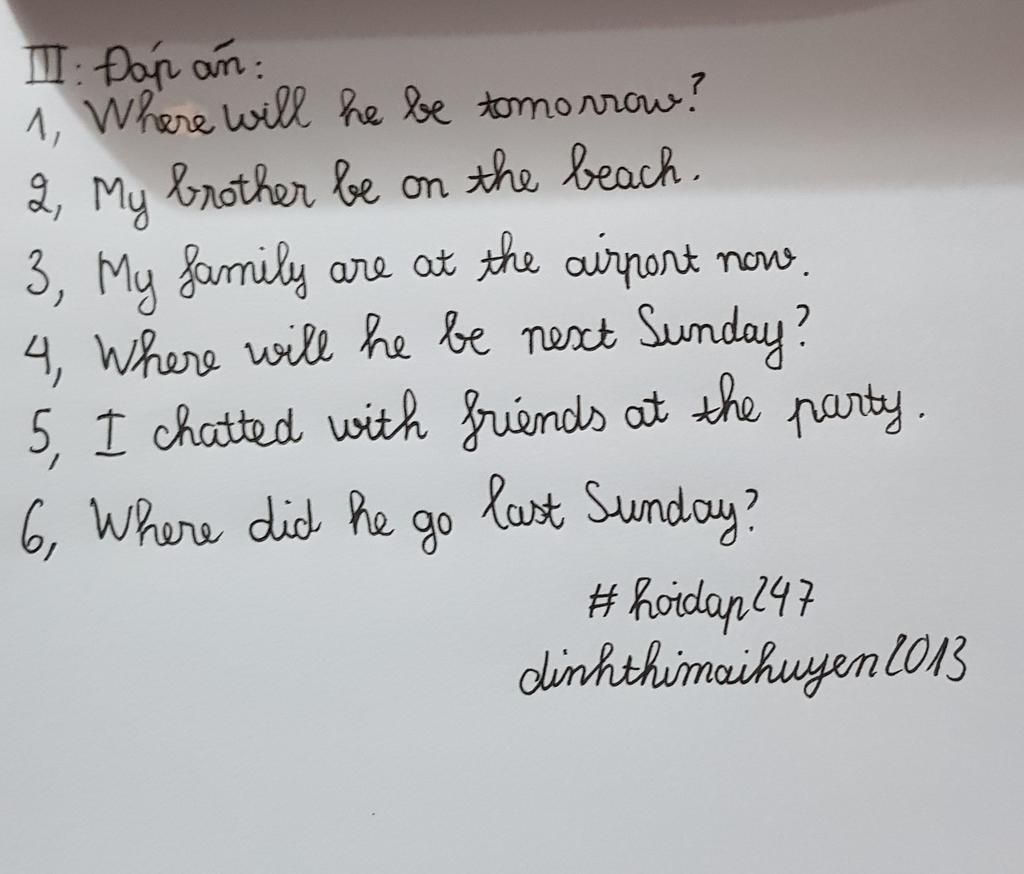 III: Đáp án:
1, Where will he be tomorrow?
2, My brother be on the beach.
3, My family are at the airport now.
4, Where will he be next Sunday?
5, I chatted with friends at the party.
6, Where did he go last Sunday?
# hoidap247
dinhthimaihuyen2013